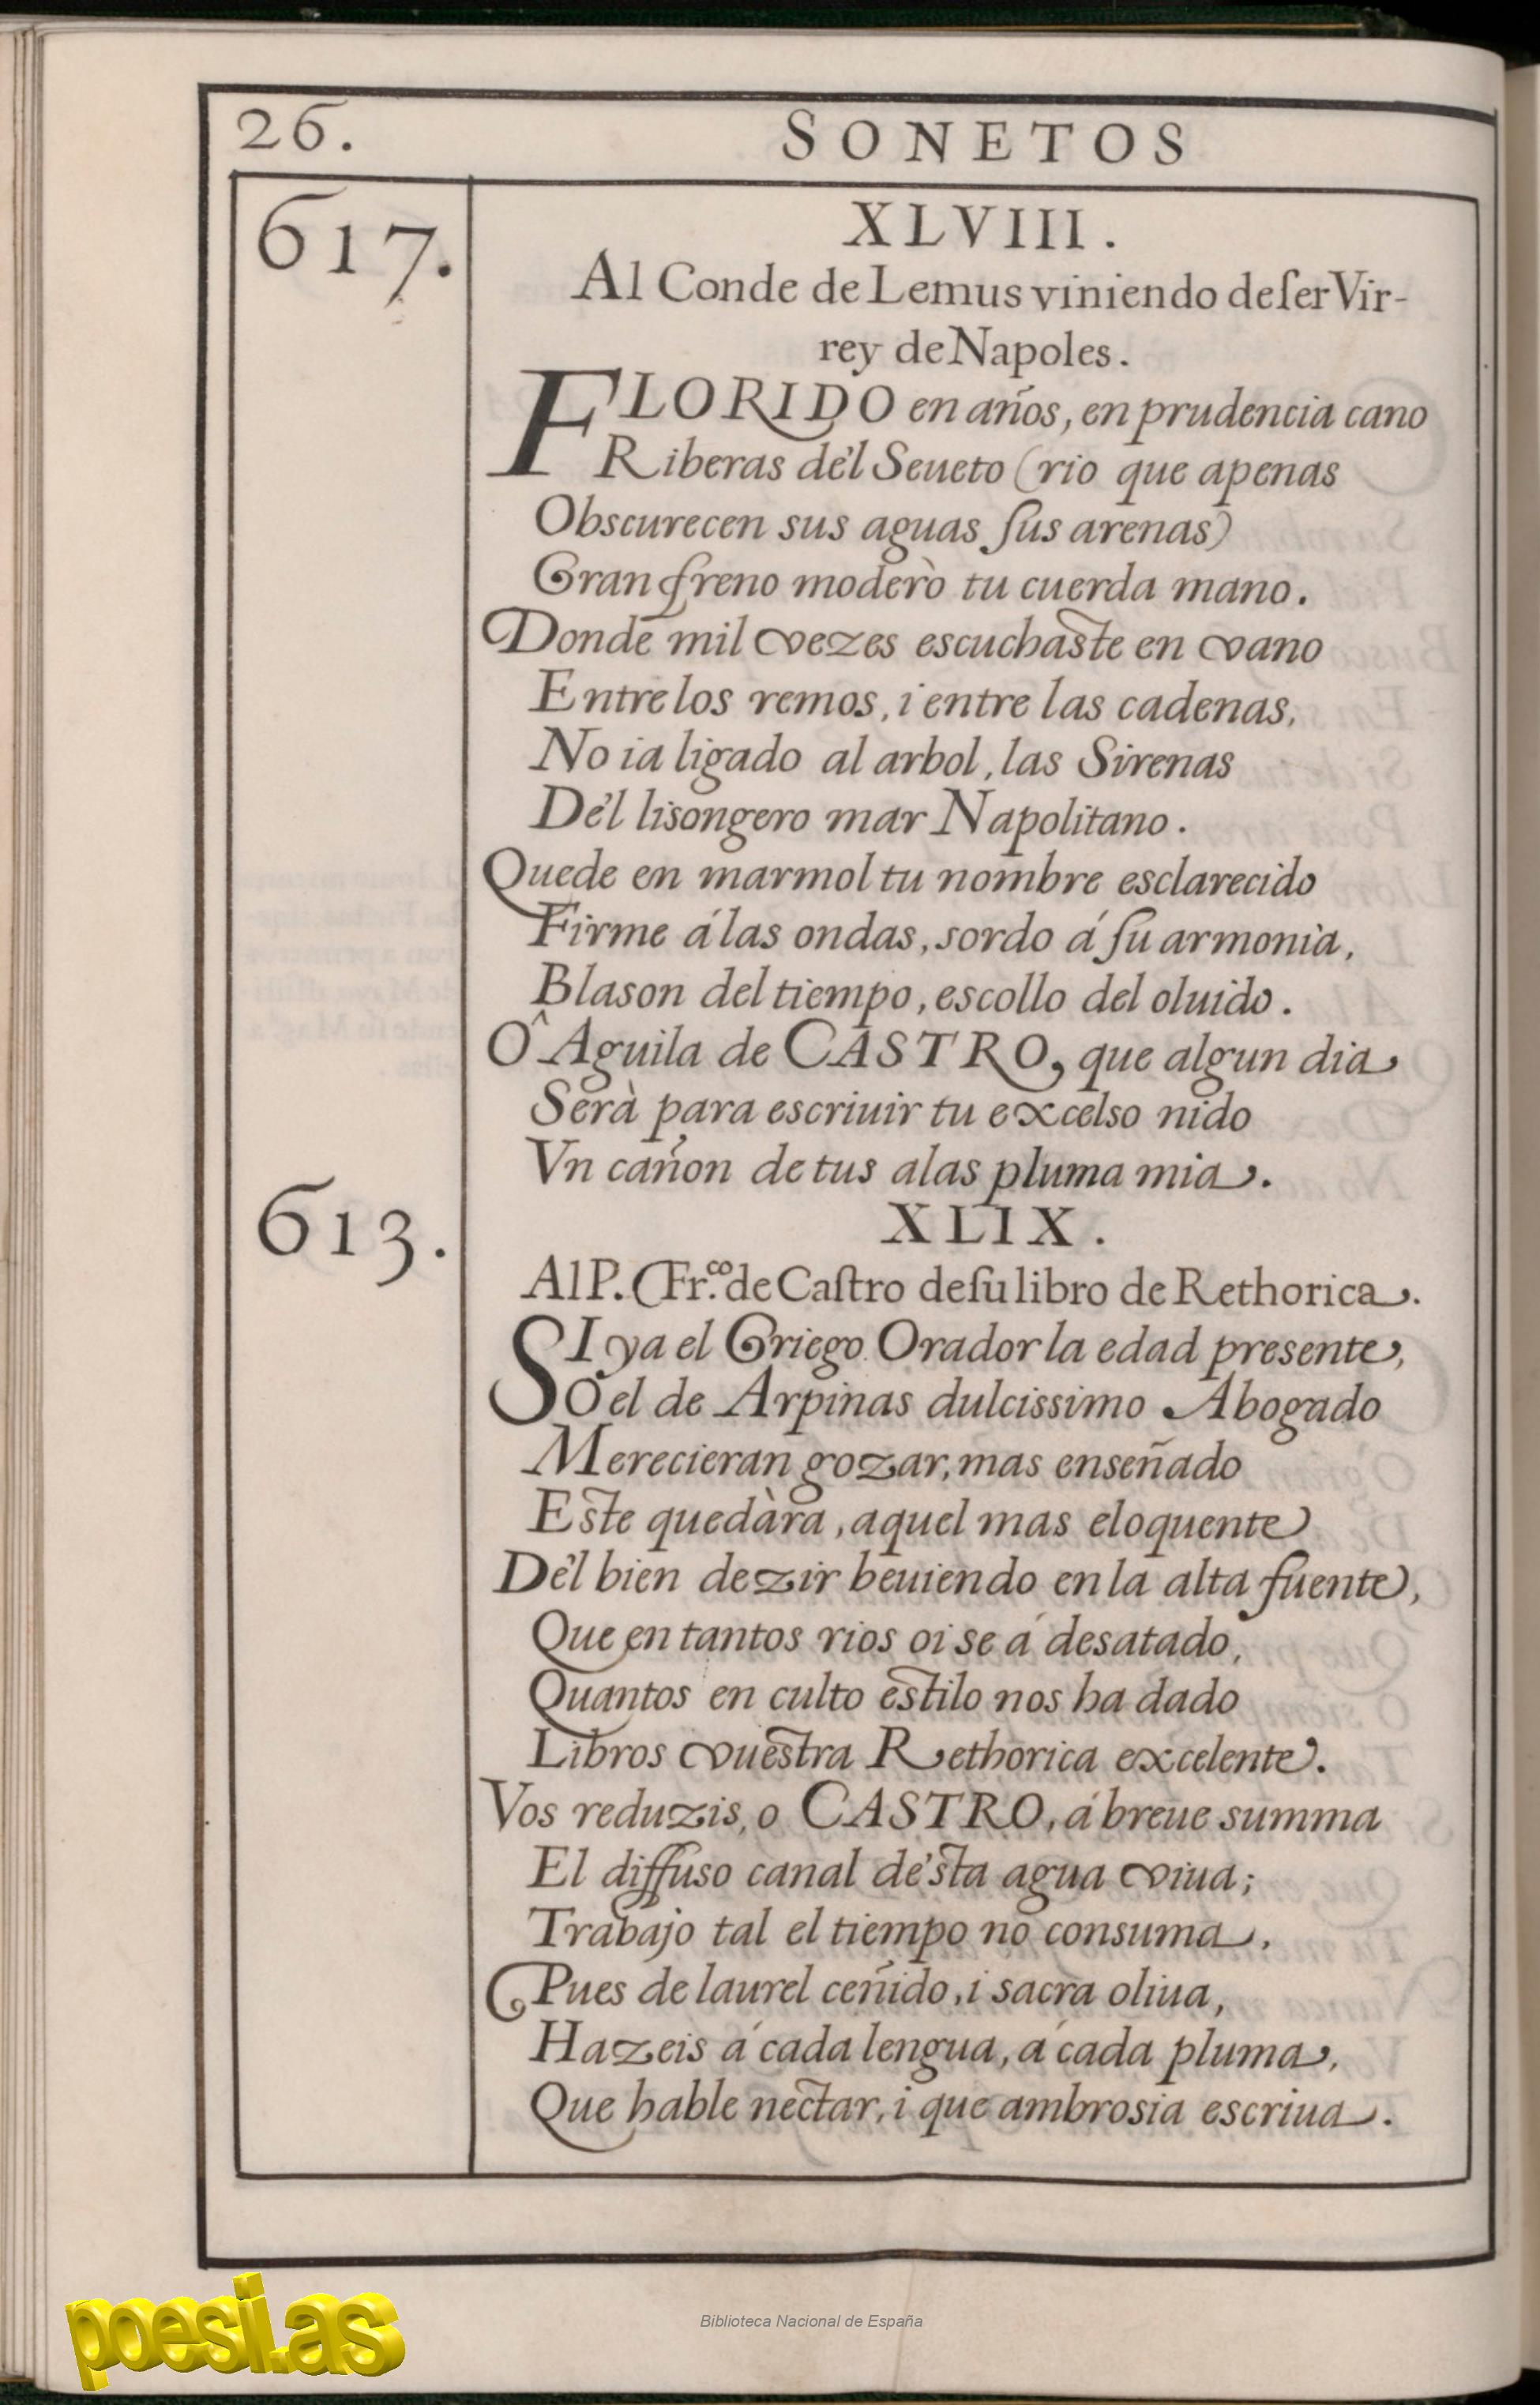 26.
SONETOS
617.
XLVIII.
Al Conde de Lemus viniendo de ſer Vir-
rey de Napoles.
FLORIDO en años, en prudencia cano
Riberas dél Seueto (rio que apenas
Obscurecen sus aguas ſus arenas)
Gran freno moderò tu cuerda mano.
Donde mil vezes escuchaste en vano
Entre los remos, i entre las cadenas,
No ia ligado al arbol, las Sirenas
Dél lisongero mar Napolitano.
Quede en marmol tu nombre esclarecido
Firme á las ondas, sordo á ſu armonia,
Blason del tiempo, escollo del oluido.
Ô Aguila de CASTRO, que algun dia
Serà para escriuir tu excelso nido
Vn cañon de tus alas pluma mia.
613.
XLIX.
Al P. Fr.co de Caſtro de ſu libro de Rethorica.
SI ya el Griego Orador la edad presente,
O el de Arpinas dulcissimo Abogado
Merecieran gozar, mas enseñado
Este quedàra, aquel mas eloquente
Dél bien dezir beuiendo en la alta fuente,
Que en tantos rios oi se á desatado,
Quantos en culto estilo nos ha dado
Libros vuestra Rethorica excelente.
Vos reduzis, o CASTRO, á breue summa
El diffuso canal désta agua viua;
Trabajo tal el tiempo no consuma,
Pues de laurel ceñido, i sacra oliua,
Hazeis á cada lengua, á cada pluma,
Que hable nectar, i que ambrosia escriua.
poesi.as
Biblioteca Nacional de España